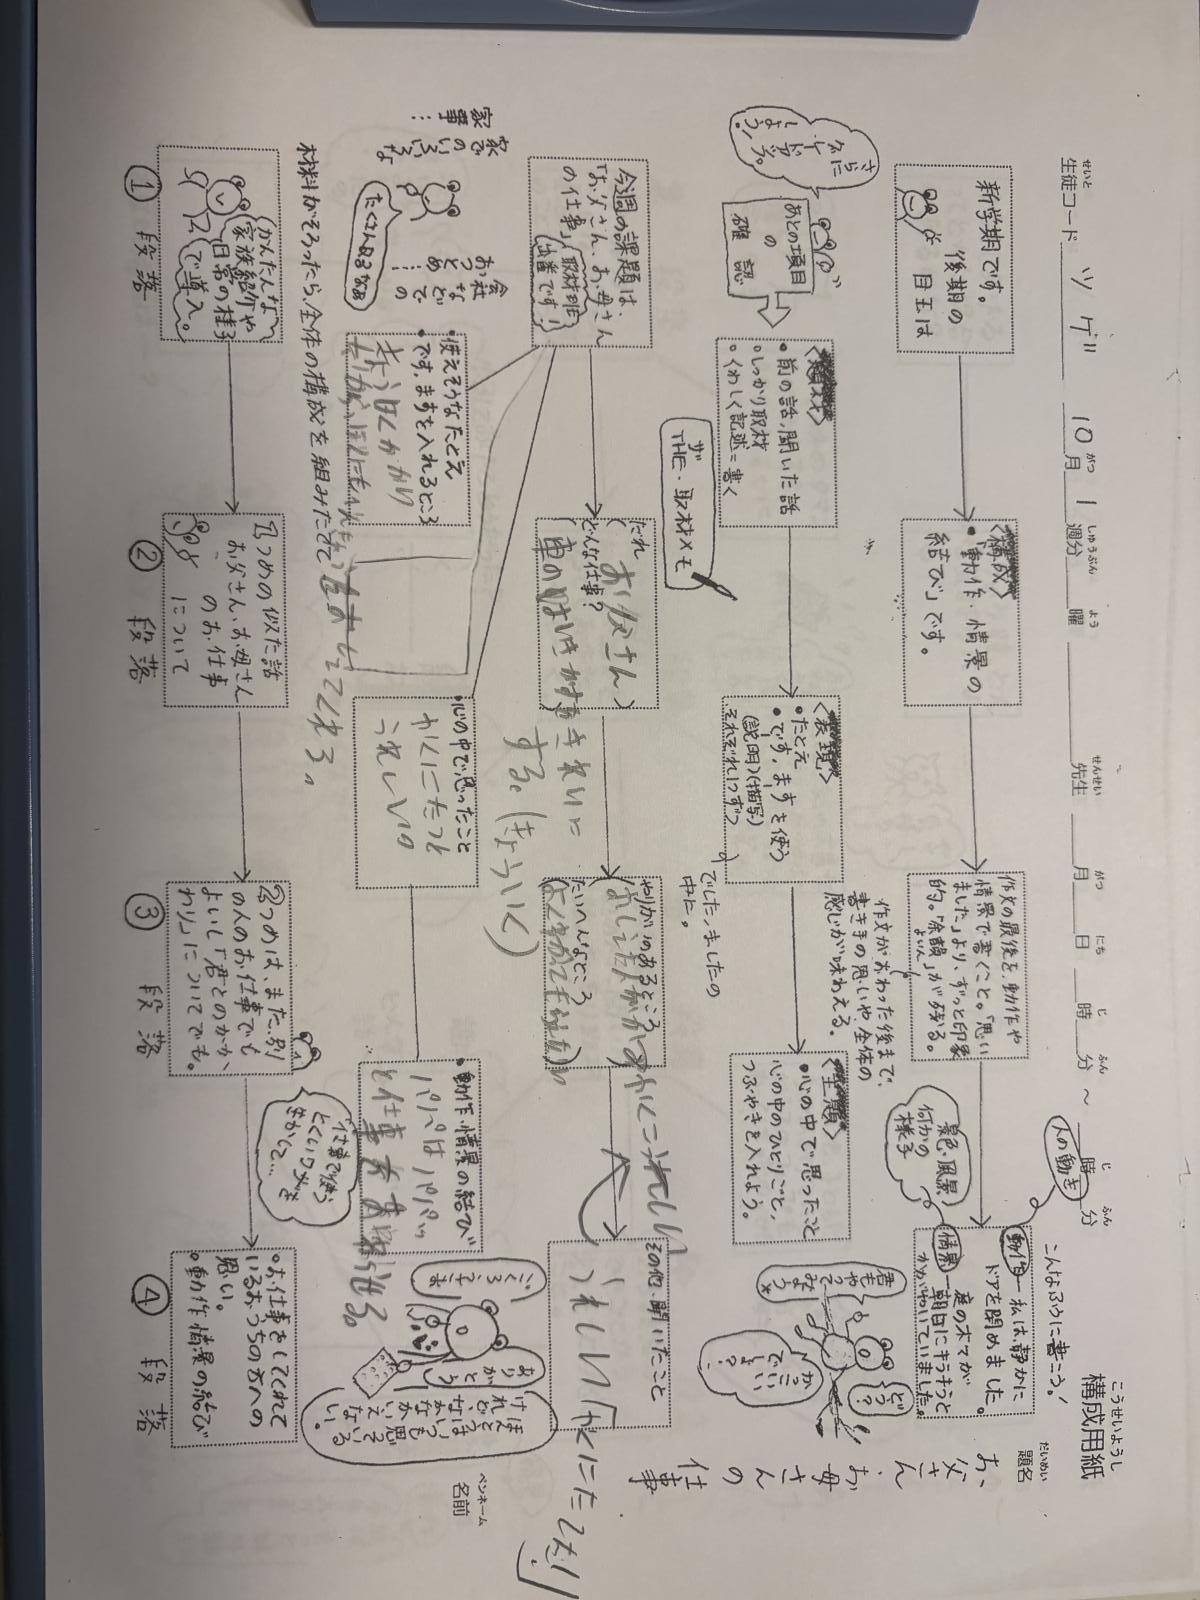 こうせいようし
構成用紙
だいめい
題名
お父さん、お母さんの仕事
ペンネーム
名前
せいと
生徒コード ツゲ
10月 1週分 曜
がつ しゅうぶん よう
せんせい
先生
がつ にち じ ふん じ ふん
月 日 時 分 ～ 時 分
新学期です。
後期の
目玉は
<構成>
・「動作・情景の
結び」です。
作文の最後を、動作や
情景で書くこと。「思い
ました」より、ずっと印象
的。「余韻」が残る。
よいん
作文がおわった後まで、
書き手の思いや、全体の
感じが味わえる。
人の動き
景色・風景
何かの
様子
こんなふうに書こう!
動作―私は、静かに
ドアを閉めました。
情景―庭の木々が
朝日にキラキラと
かがやいていました。
さらに
グレード
しよう!
あとの項目
の
確認
<題材>
・前の話、聞いた話
・しっかり取材
・くわしく記述=書く
ザ
THE・取材メモ
<表現>
・たとえ
・です。ますを使う
(説明)(描写)
それぞれ1つずつ
でした、ましたの
中に。
<主題>
・心の中で思ったこと
心の中のひとりごと、
つぶやきを入れよう。
君も
やって
みよう
どう?
かっこいい
でしょ?
今週の課題は、
「お父さん、お母さん
の仕事」
取材班
出番です!
家での
いろいろな
家事…
お会社
などで
つとめ…
たくさんあるなぁ
だれ
お父さん
どんな仕事?
車のはいきガスを
きれいに
する。
やりがいのあるところ
たいへんなところ
その他、聞いたこと
うれしい
・使えそうなたとえ
・です。ますを入れるところ
・心の中で思ったこと
かくにたつと
うれしいの
・動作・情景の結び
パパはパパっ
と仕事を
材料がそろったら、全体の構成を組みたて
ありがとう
ほんとうは
いつも
思っている
けれど、
なかなか
いえない。
① 段落
かんたんな
家族紹介や
日常の様子
で導入。
② 段落
1つめの似た話
お父さん、お母さん
のお仕事
について
③ 段落
2つめは、また、別
の人のお仕事でも
よいし「君とのかか
わり」についてでも。
仕事で使う
とくいワザを
きかして…
④ 段落
・お仕事をしてくれて
いるおうちの方への
思い。
・動作、情景の結び